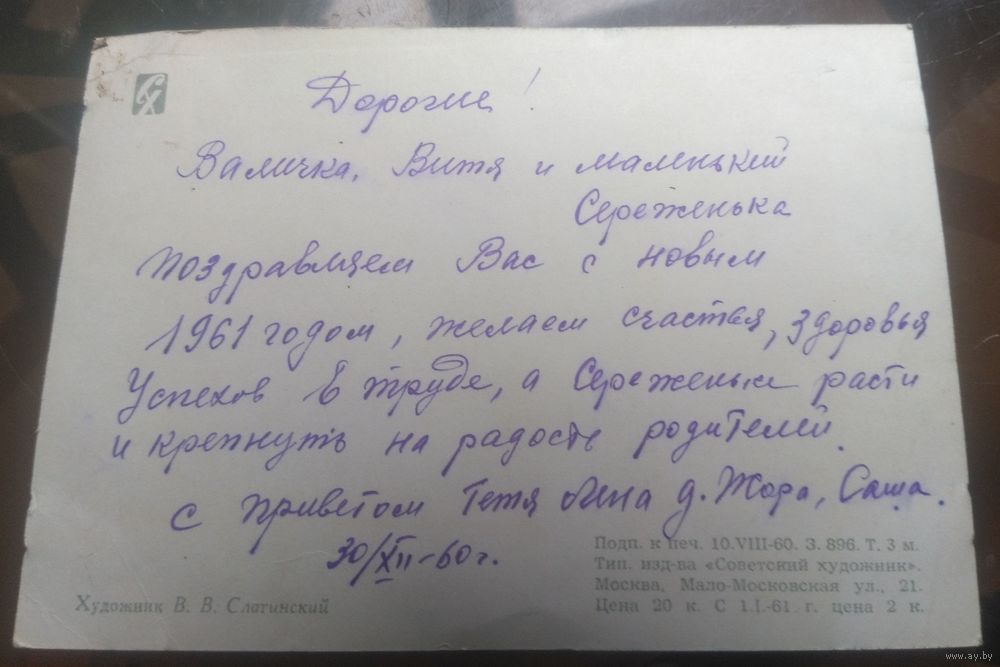 Дорогие!
Валичка, Витя и маленький
Сереженька
поздравляем Вас с новым
1961 годом, желаем счастья, здоровья
Успехов в труде, а Сереженьке расти
и крепнуть на радость родителей.
с приветом Тетя Лена д. Жора, Саша.
30/XII-60г.
Подп. к печ. 10.VIII-60. З. 896. Т. 3 м.
Тип. изд-ва «Советский художник».
Москва, Мало-Московская ул., 21.
Художник В. В. Слатинский
Цена 20 к. С 1.I.-61 г. цена 2 к.
www.ay.by